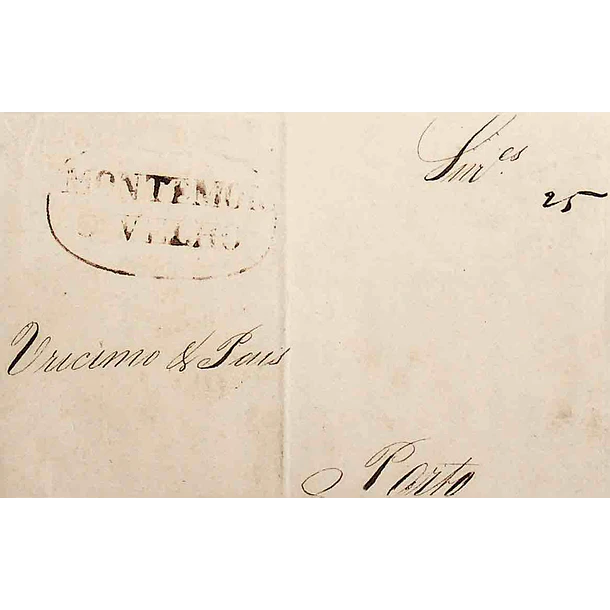 MONTEMOR
O VELHO
Snr.es
25
Vricimo & Pais
Porto